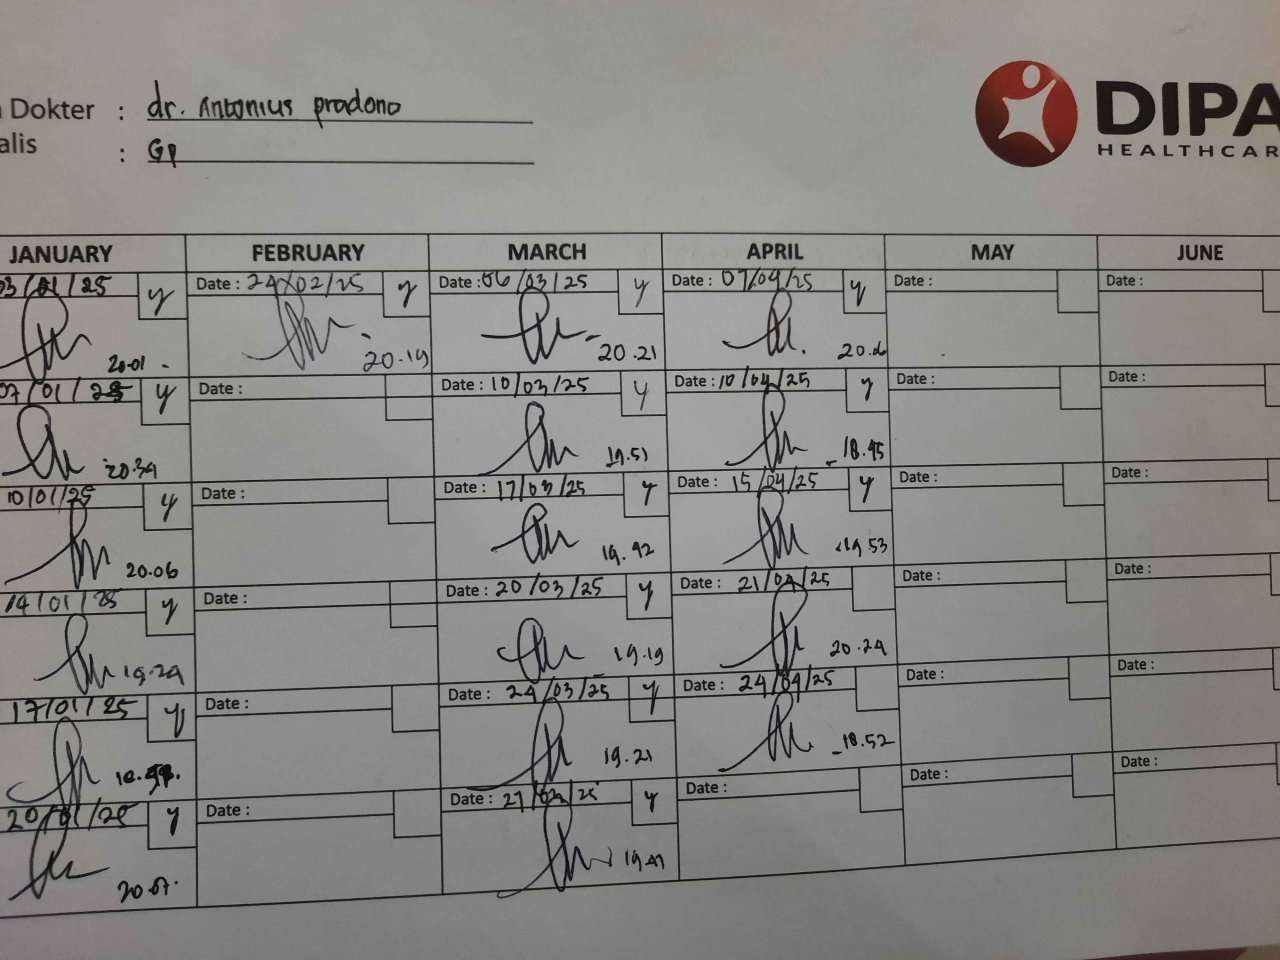 Dokter : dr. Antonius pradono
alis : GP
DIPA
HEALTHCAR
JANUARY FEBRUARY MARCH APRIL MAY JUNE
03/01/25 y Date : 24/02/25 y Date : 06/03/25 y Date : 07/04/25 y Date : Date :
20.01 20.19 20.21 20.
07/01/25 y Date : Date : 10/03/25 y Date : 10/04/25 y Date : Date :
20.39 19.51 18.45
10/01/25 y Date : Date : 17/03/25 y Date : 15/04/25 y Date : Date :
20.06 19.42 19 53
14/01/25 y Date : Date : 20/03/25 y Date : 21/04/25 Date : Date :
19.29 19.19 20.24
17/01/25 y Date : Date : 24/03/25 y Date : 24/04/25 Date : Date :
19.21 18.52
20/01/25 y Date : Date : 27/03/25 y Date : Date : Date :
20.07.